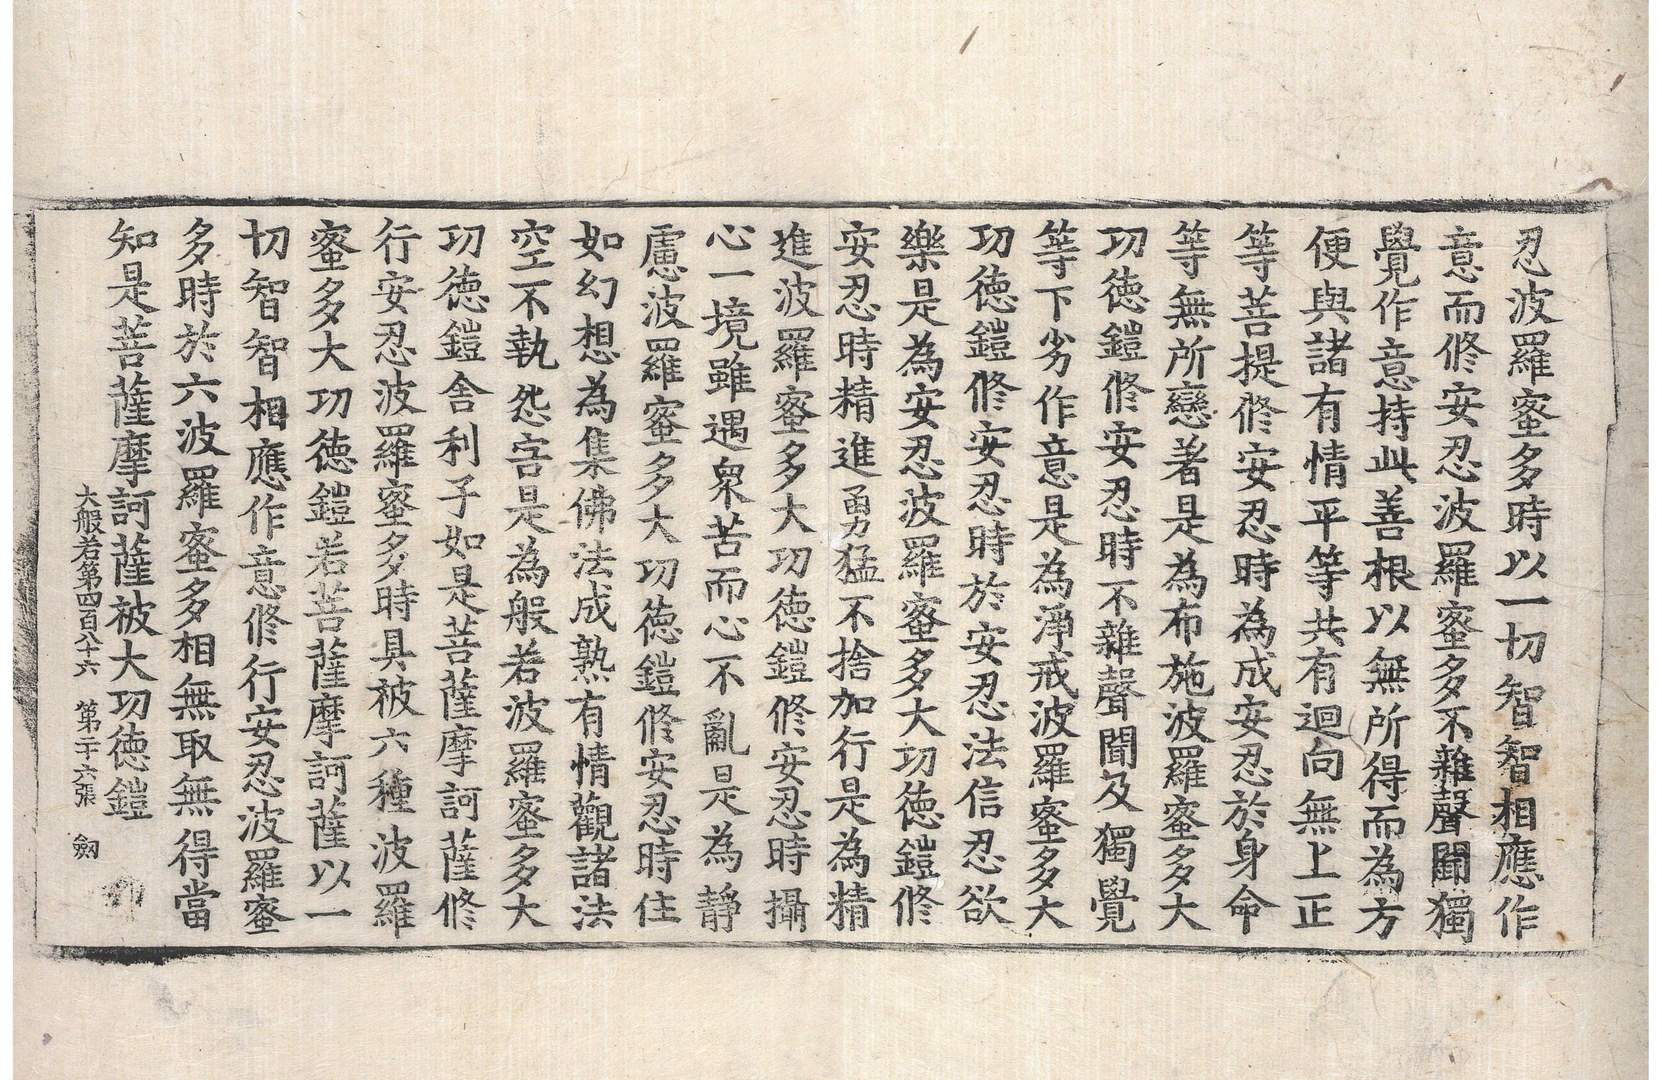 忍波羅蜜多時以一切智智相應作
意而修安忍波羅蜜多不雜聲聞獨
覺作意持此善根以無所得而為方
便與諸有情平等共有迴向無上正
等菩提修安忍時為成安忍於身命
等無所戀著是為布施波羅蜜多大
功德鎧修安忍時不雜聲聞及獨覺
等下劣作意是為淨戒波羅蜜多大
功德鎧修安忍時於安忍法信忍欲
樂是為安忍波羅蜜多大功德鎧修
安忍時精進勇猛不捨加行是為精
進波羅蜜多大功德鎧修安忍時攝
心一境雖遇衆苦而心不亂是為靜
慮波羅蜜多大功德鎧修安忍時住
如幻想為集佛法成熟有情觀諸法
空不執怨害是為般若波羅蜜多大
功德鎧舍利子如是菩薩摩訶薩修
行安忍波羅蜜多時具被六種波羅
蜜多大功德鎧若菩薩摩訶薩以一
切智智相應作意修行安忍波羅蜜
多時於六波羅蜜多相無取無得當
知是菩薩摩訶薩被大功德鎧
大般若第四百八十六 第二十六張 劒